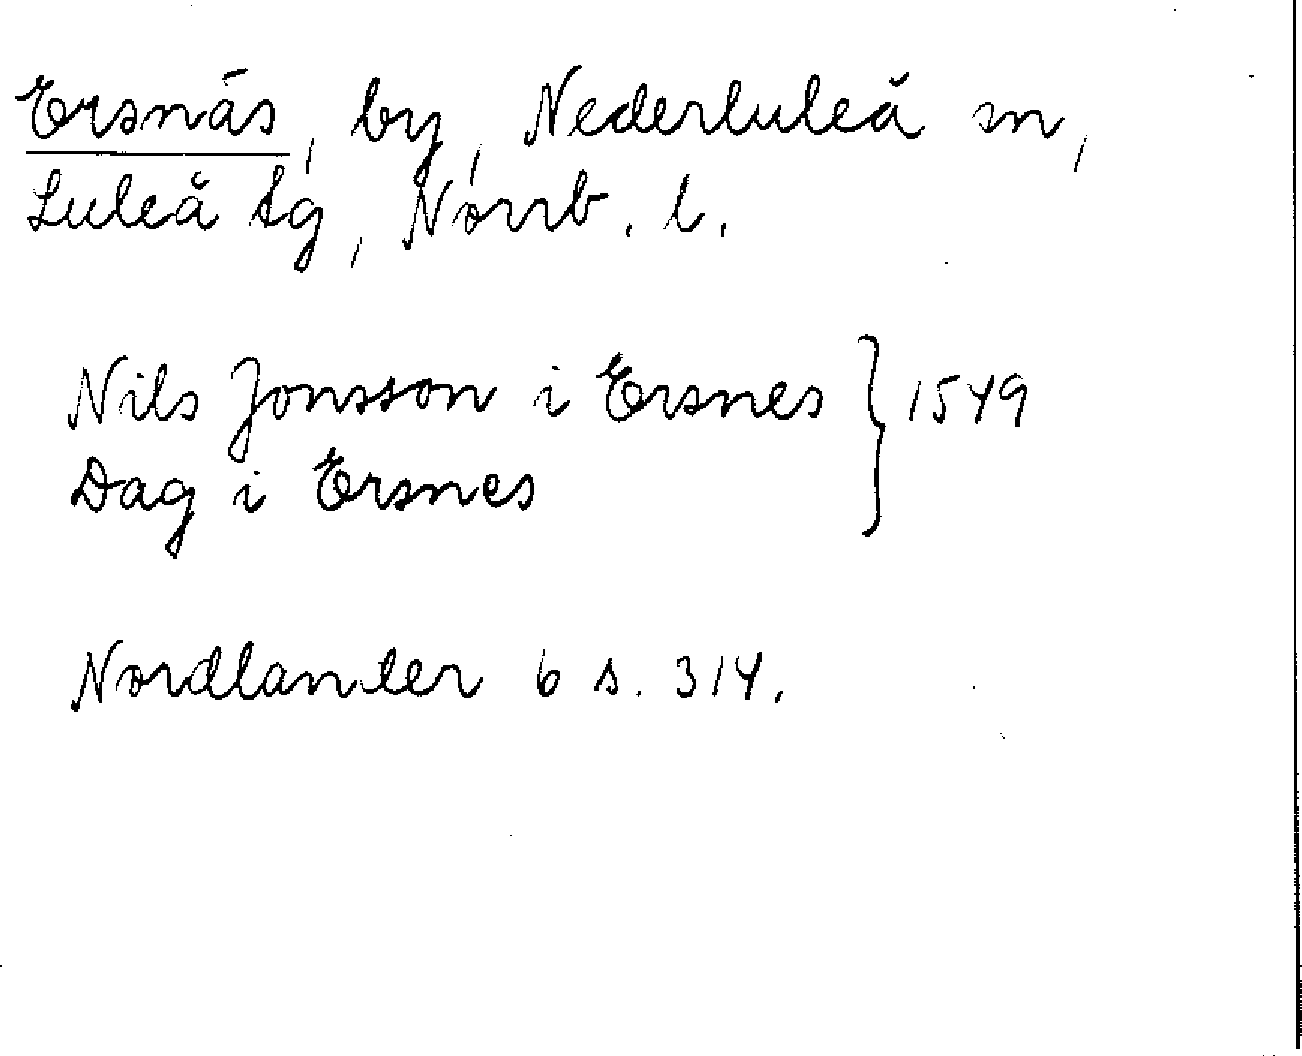 Ersnäs, by, Nederluleå sn,
Luleå tg, Norrb. l.
Nils Jonsson i Ersnes } 1549
Dag i Ersnes
Nordlander 6 s. 314.